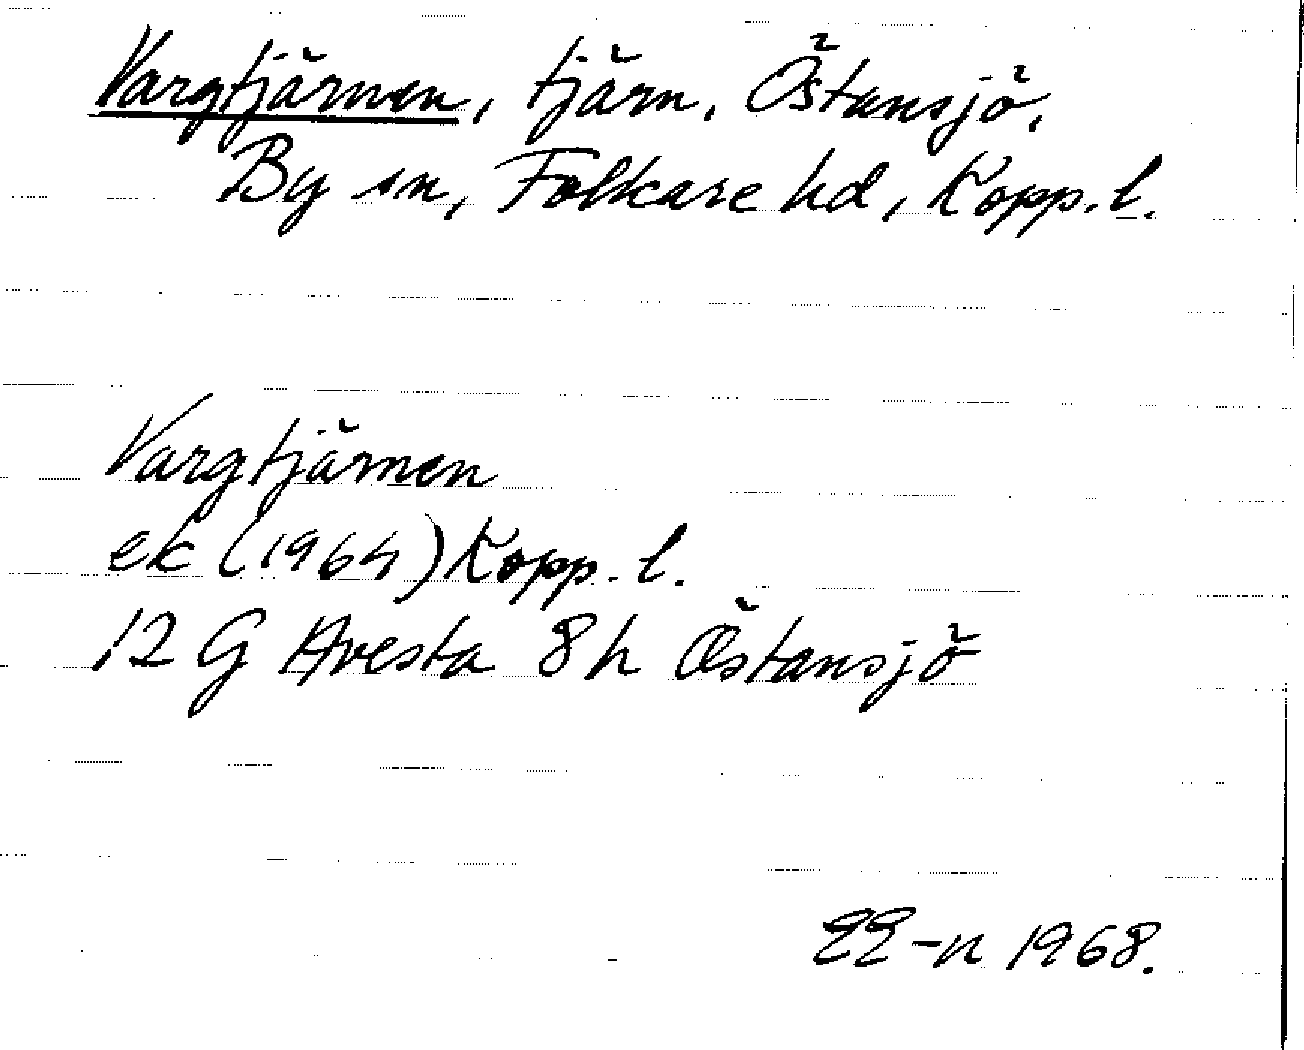 Vargtjärnen, tjärn, Östansjö,
By sn, Folkare hd, Kopp. l.
Vargtjärnen
ek (1964) Kopp. l.
12 G Avesta 8h Östansjö
EE-n 1968.